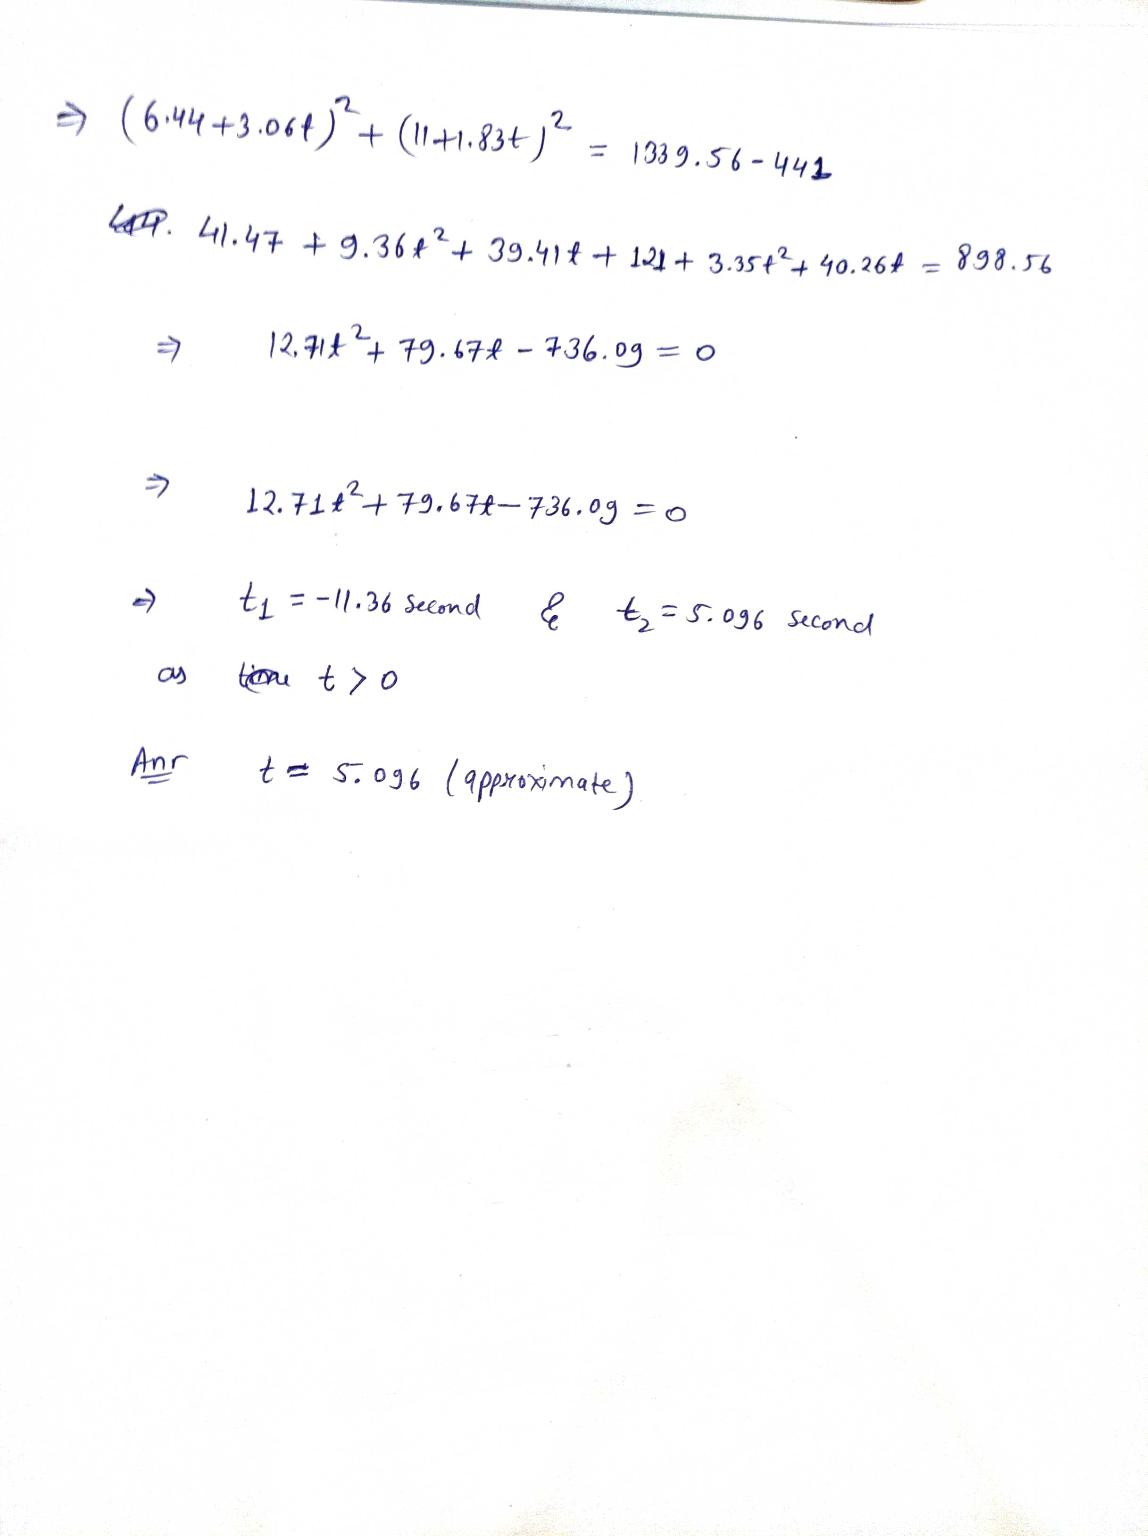 ⇒ (6.44+3.06t)² + (11+1.83t)² = 1339.56-441
41.47 + 9.36t² + 39.41t + 121 + 3.35t² + 40.26t = 898.56
⇒ 12.71t² + 79.67t - 736.09 = 0
⇒ 12.71t² + 79.67t - 736.09 = 0
⇒ t₁ = -11.36 Second & t₂ = 5.096 second
as time t > 0
Ans t = 5.096 (approximate)